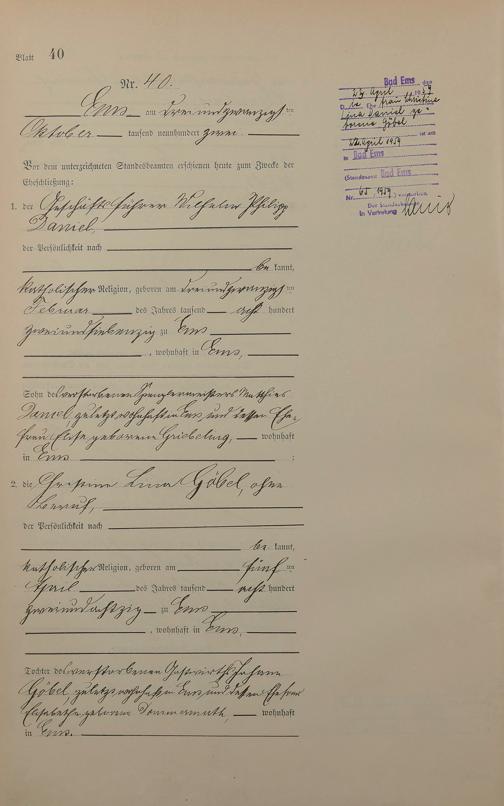 Blatt 40
Nr. 40.
Ems am dreiundzwanzigsten
Oktober tausend neunhundert zwei
Vor dem unterzeichneten Standesbeamten erschienen heute zum Zwecke der
Eheschließung:
1. der Geschäftsführer Wilhelm Philipp
Daniel,
der Persönlichkeit nach
be kannt,
katholischer Religion, geboren am dreiundzwanzigsten
Februar des Jahres tausend acht hundert
zweiundsiebenzig zu Ems
, wohnhaft in Ems,
Sohn des verstorbenen Spenglermeisters Matthias
Daniel, zuletzt wohnhaft in Ems, und dessen Ehe-
frau Elise geborenen wohnhaft
in Ems :
2. die Christine Lina Göbel, ohne
Beruf,
der Persönlichkeit nach
be kannt,
katholischer Religion, geboren am fünf ten
April des Jahres tausend acht hundert
zweiundachtzig zu Ems
, wohnhaft in Ems,
Tochter des verstorbenen Gastwirths Johann
Göbel, zuletzt wohnhaft in Ems und dessen Ehefrau
Elisabethe geborenen wohnhaft
in Ems.
Bad Ems, den
23. April 1959
Ehefrau Christine
Lina Daniel ge-
borene Göbel
ist am
22. April 1959
in Bad Ems
(Standesamt Bad Ems
Nr. 65/1959) verstorben.
Der Standesbeamte
In Vertretung